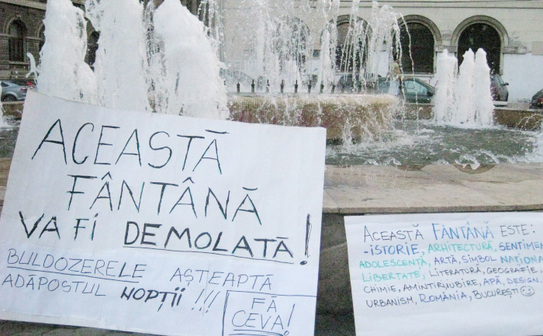 ACEASTĂ
FÂNTÂNĂ
VA FI DEMOLATĂ!
BULDOZERELE AȘTEAPTĂ
ADĂPOSTUL NOPȚII!!!
FĂ
CEVA!
ACEASTĂ FÂNTÂNĂ ESTE:
-ISTORIE, ARHITECTURĂ, SENTIMENT
ADOLESCENȚĂ, ARTĂ, SIMBOL NAȚIONAL
LIBERTATE, LITERATURĂ, GEOGRAFIE,
CHIMIE, AMINTIRI, IUBIRE, APĂ, DESIGN,
URBANISM, ROMÂNIA, BUCUREȘTI